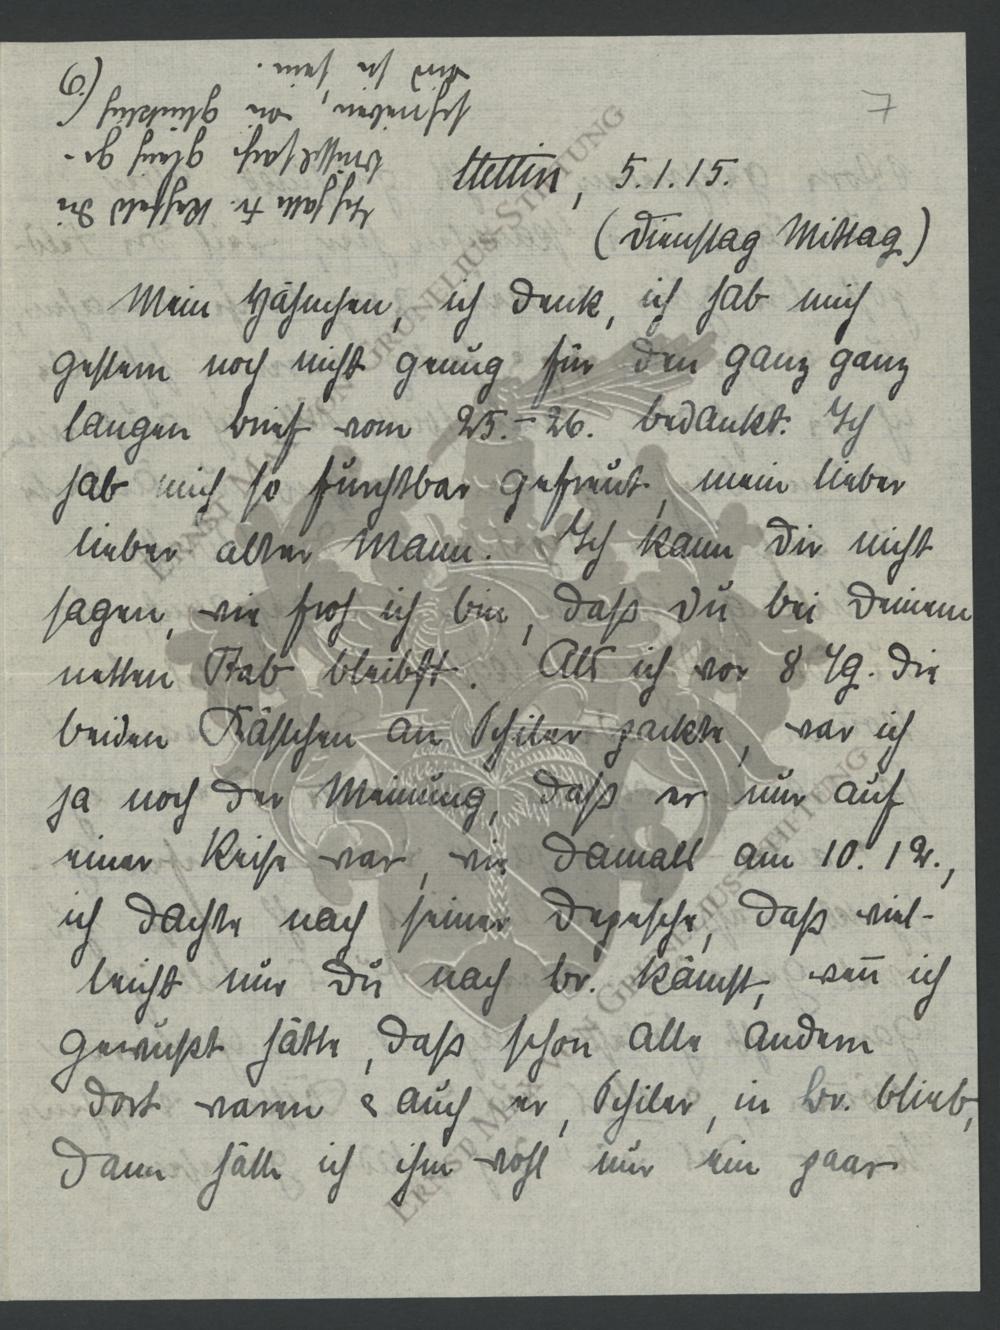 7
Stettin, 5.1.15.
(Dienstag Mittag)
Mein Hähnchen, ich denk, ich hab mich
gestern noch nicht genug für den ganz ganz
langen brief vom 25.-26. bedankt. Ich
hab mich so furchtbar gefreut, mein lieber
lieber alter Mann. Ich kann Dir nicht
sagen, wie froh ich bin, daß Du bei Deinem
netten Stab bleibst. Als ich vor 8 Tg. die
beiden Kästchen an Schiler packte, war ich
ja noch der Meinung, daß er nur auf
einer Reise war, wie damals am 10.12.,
ich dachte nach seiner Depesche, daß viel-
leicht nur Du nach br. kämst, wen̄ ich
gewußt hätte, daß schon alle andern
dort waren & auch er, Schiler, in br. blieb,
dann hätte ich ihm wohl nur ein paar
Ich hatte Fr. die
gleich ge-
schrieben, wie glücklich
wir so sein.
6.)
ERNST MAX VON GRUNELIUS-STIFTUNG
ERNST MAX VON GRUNELIUS-STIFTUNG